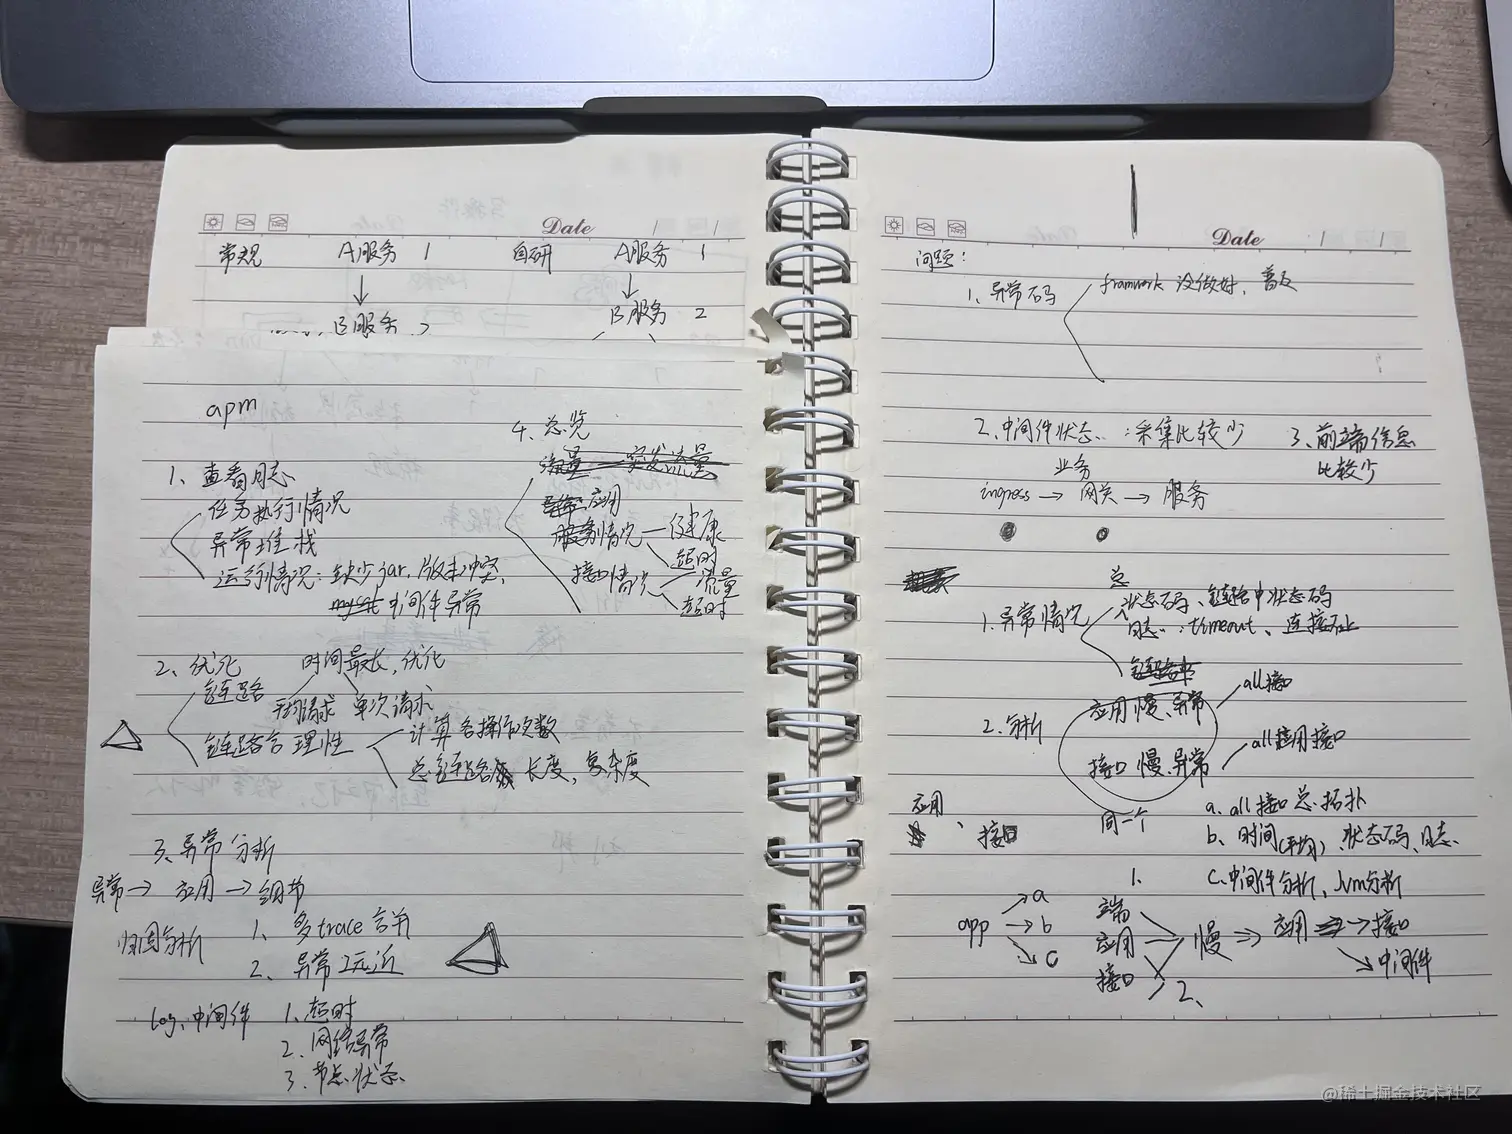 Date
常规 A服务 1 自研 A服务 1
↓ ↓
B服务 2 B服务 2
apm
1、查看日志
任务执行情况
异常堆栈
运行情况：缺少jar，版本冲突，
中间件异常
2、优化 时间最长，优化
链路
平均请求 单次请求
链路合理性 计算各操作次数
总链路 长度，复杂度
3、异常分析
异常→ 应用→细节
归因分析 1、多trace合并
2、异常
log、中间件 1、超时
2、网络异常
3、节点状态
4、总览
流量 突发流量
应用
服务情况—健康
超时
接口情况 流量
超时
Date
问题：
1、异常码 framwork 没做好，普及
2、中间件状态：采集比较少 3、前端信息
比较少
业务
ingress → 网关 → 服务
总
1、异常情况 状态码、链路中状态码
日志：timeout、连接不上
2、分析 应用 慢、异常 all接口
接口 慢、异常 all应用接口
同一个
应用、接口
a、all接口总拓扑
b、时间(平均)、状态码、日志
c、中间件分析、Jvm分析
1、
app →a
→b
→c
端
应用 慢 ⇒ 应用 → 接口
接口 中间件
2、
@稀土掘金技术社区